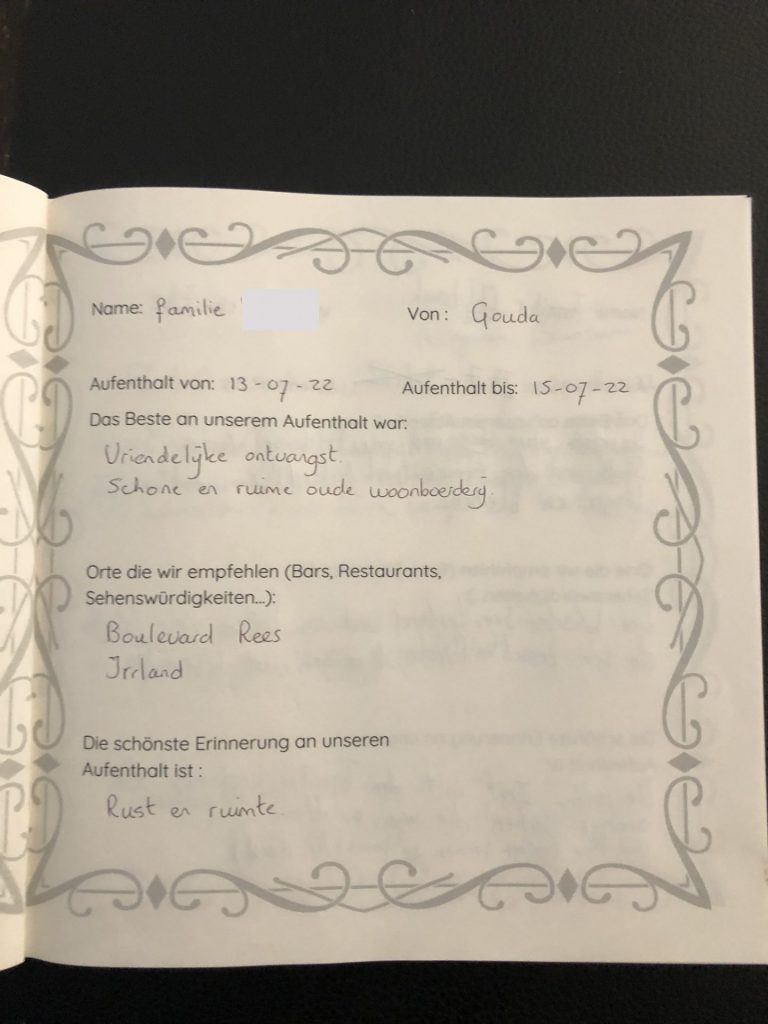 Name: familie
Von: Gouda
Aufenthalt von: 13-07-22
Aufenthalt bis: 15-07-22
Das Beste an unserem Aufenthalt war:
Vriendelijke ontvangst.
Schone en ruime oude woonboerderij.
Orte die wir empfehlen (Bars, Restaurants,
Sehenswürdigkeiten...):
Boulevard Rees
Irrland
Die schönste Erinnerung an unseren
Aufenthalt ist :
Rust en ruimte.